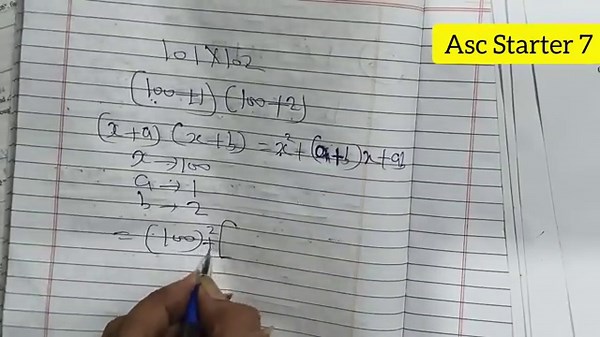 Asc Starter 7
101 x 102
(100+1) (100+2)
(x+a) (x+b) = x²+(a+b)x+ab
x → 100
a → 1
b → 2
= (100)²+(